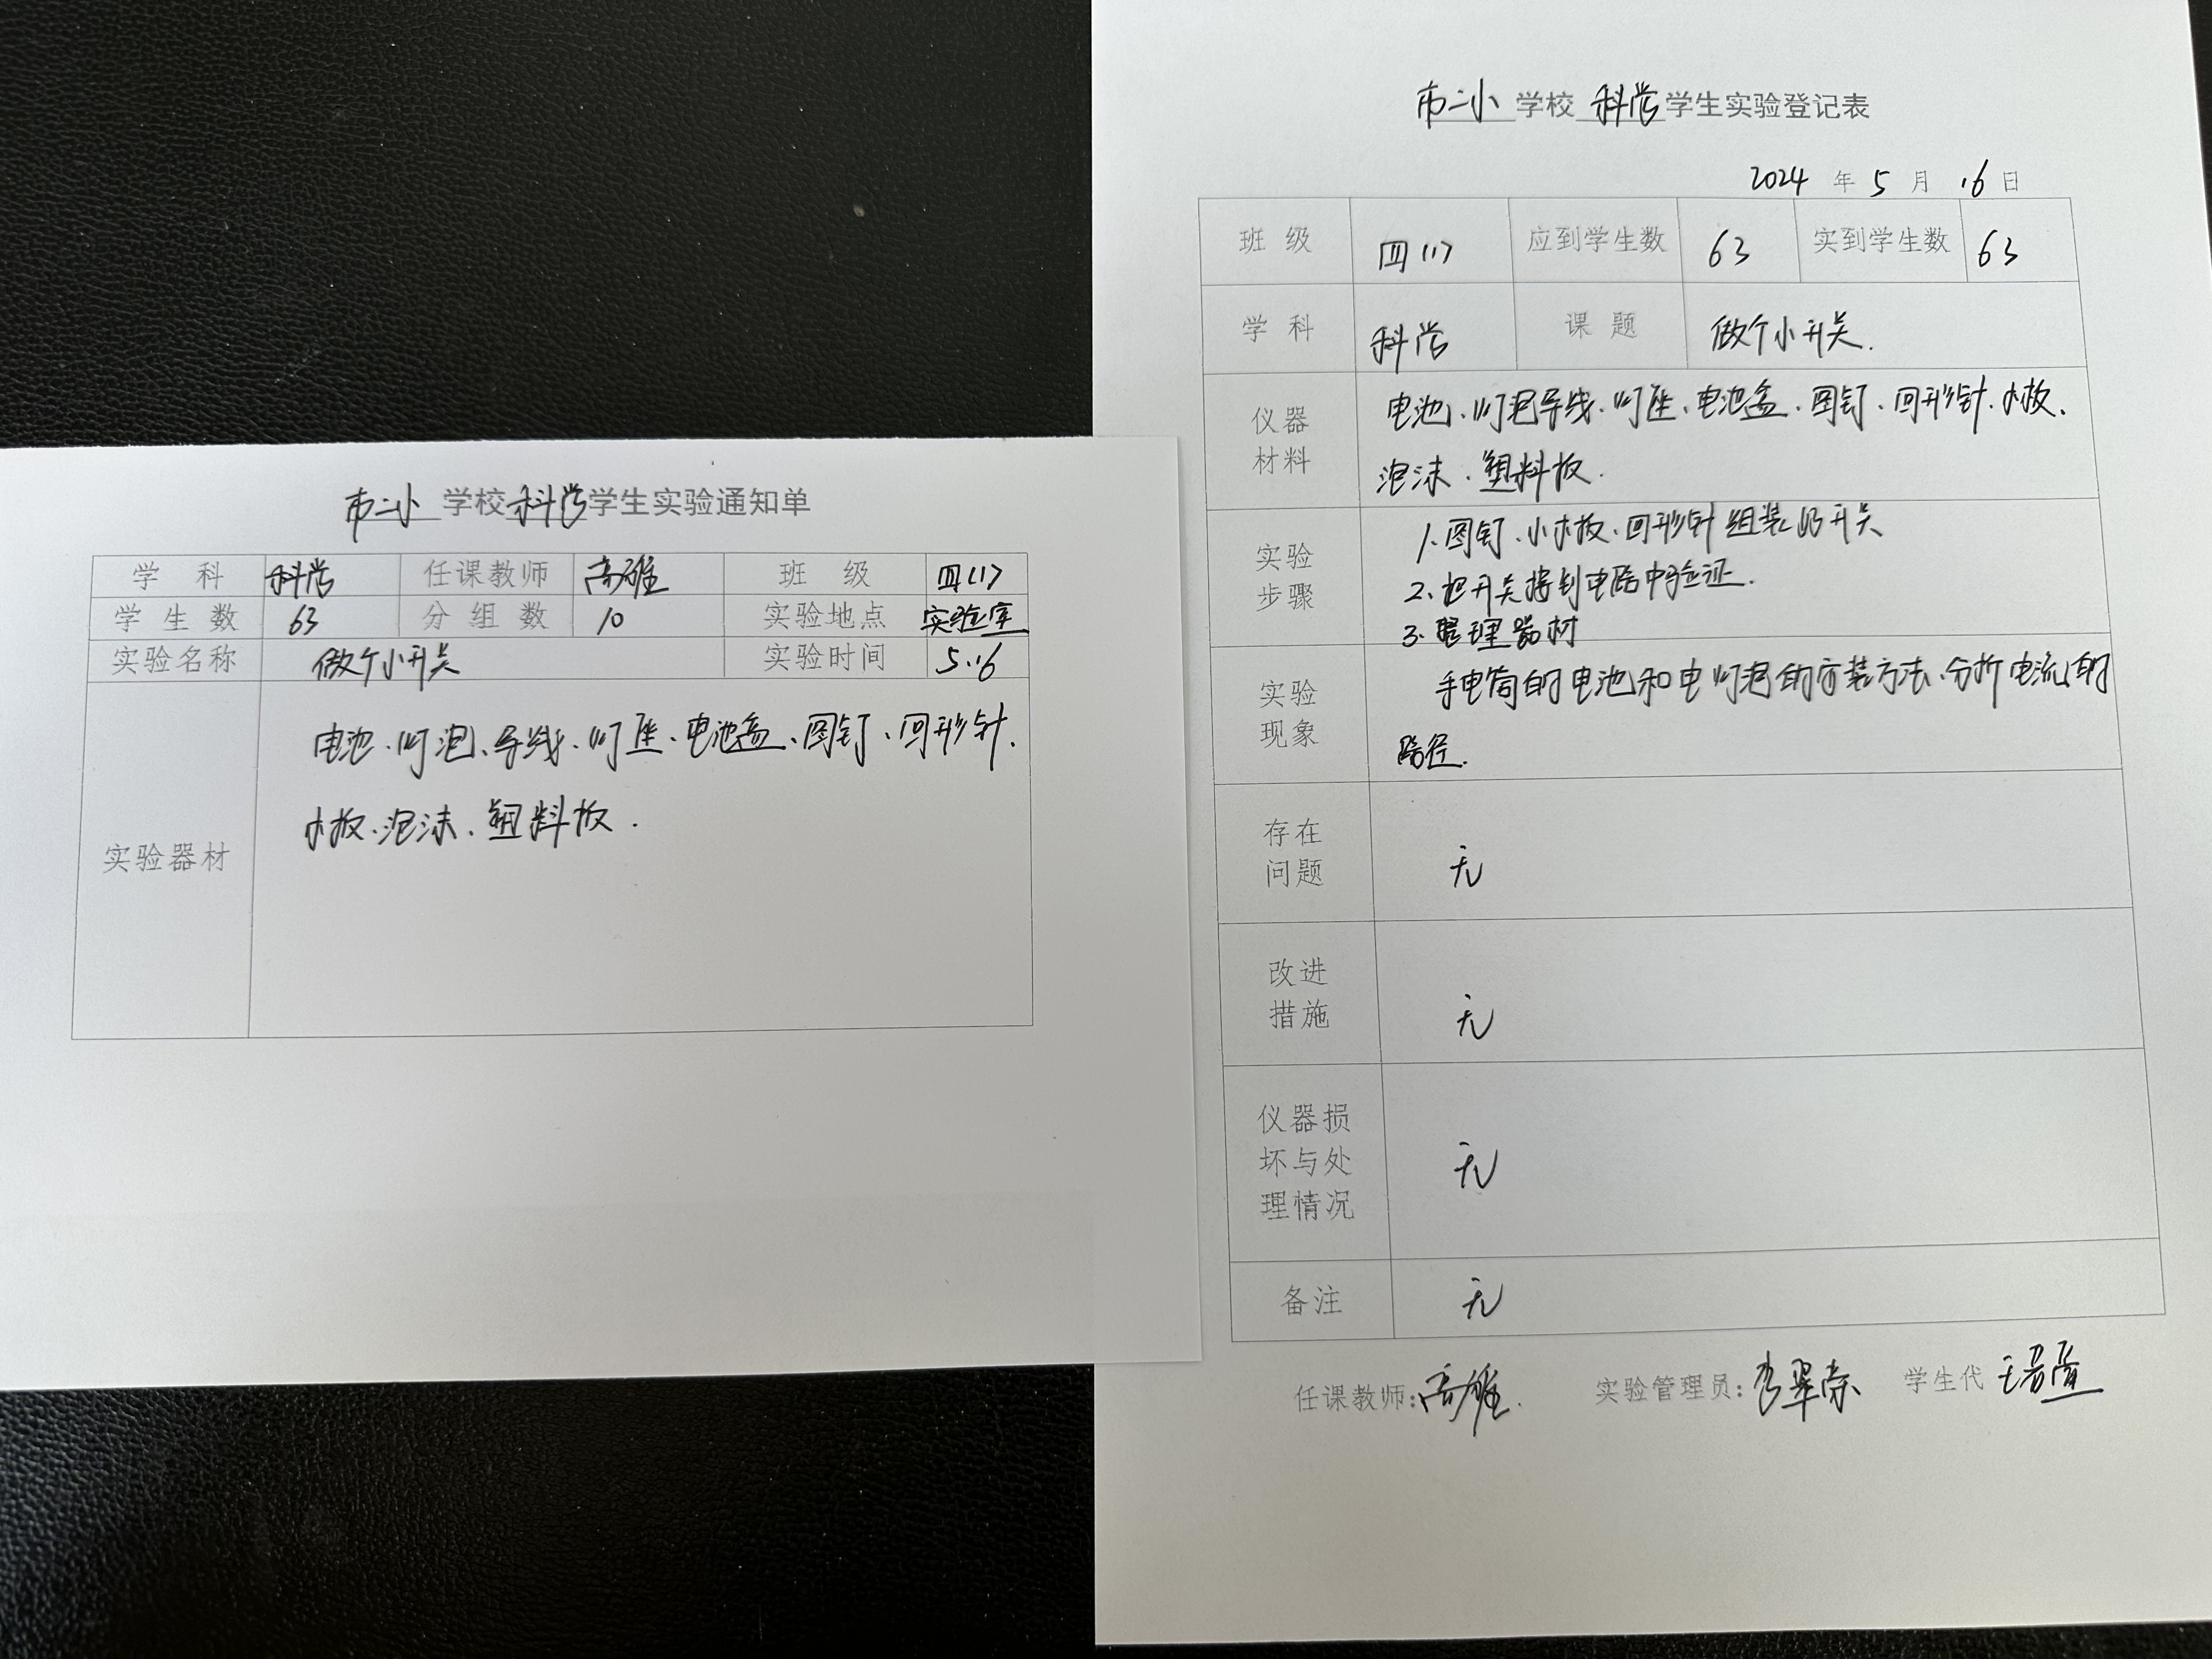 市二小学校科学学生实验通知单
学科 科学 任课教师 高雄 班级 四(1)
学生数 63 分组数 10 实验地点 实验室
实验名称 做个小开关 实验时间 5.16
实验器材
电池、灯泡、导线、灯座、电池盒、图钉、回形针、
木板、泡沫、塑料板.
市二小学校科学学生实验登记表
2024年5月16日
班级 四(1) 应到学生数 63 实到学生数 63
学科 科学 课题 做个小开关.
仪器材料
电池、灯泡导线、灯座、电池盒、图钉、回形针、木板、
泡沫、塑料板.
实验步骤
1、图钉、小木板、回形针组装的开关
2、把开关接到电路中验证.
3、整理器材
实验现象
手电筒的电池和电灯泡的安装方法、分析电流的
路径.
存在问题
无
改进措施
无
仪器损坏与处理情况
无
备注 无
任课教师:高雄. 实验管理员: 学生代